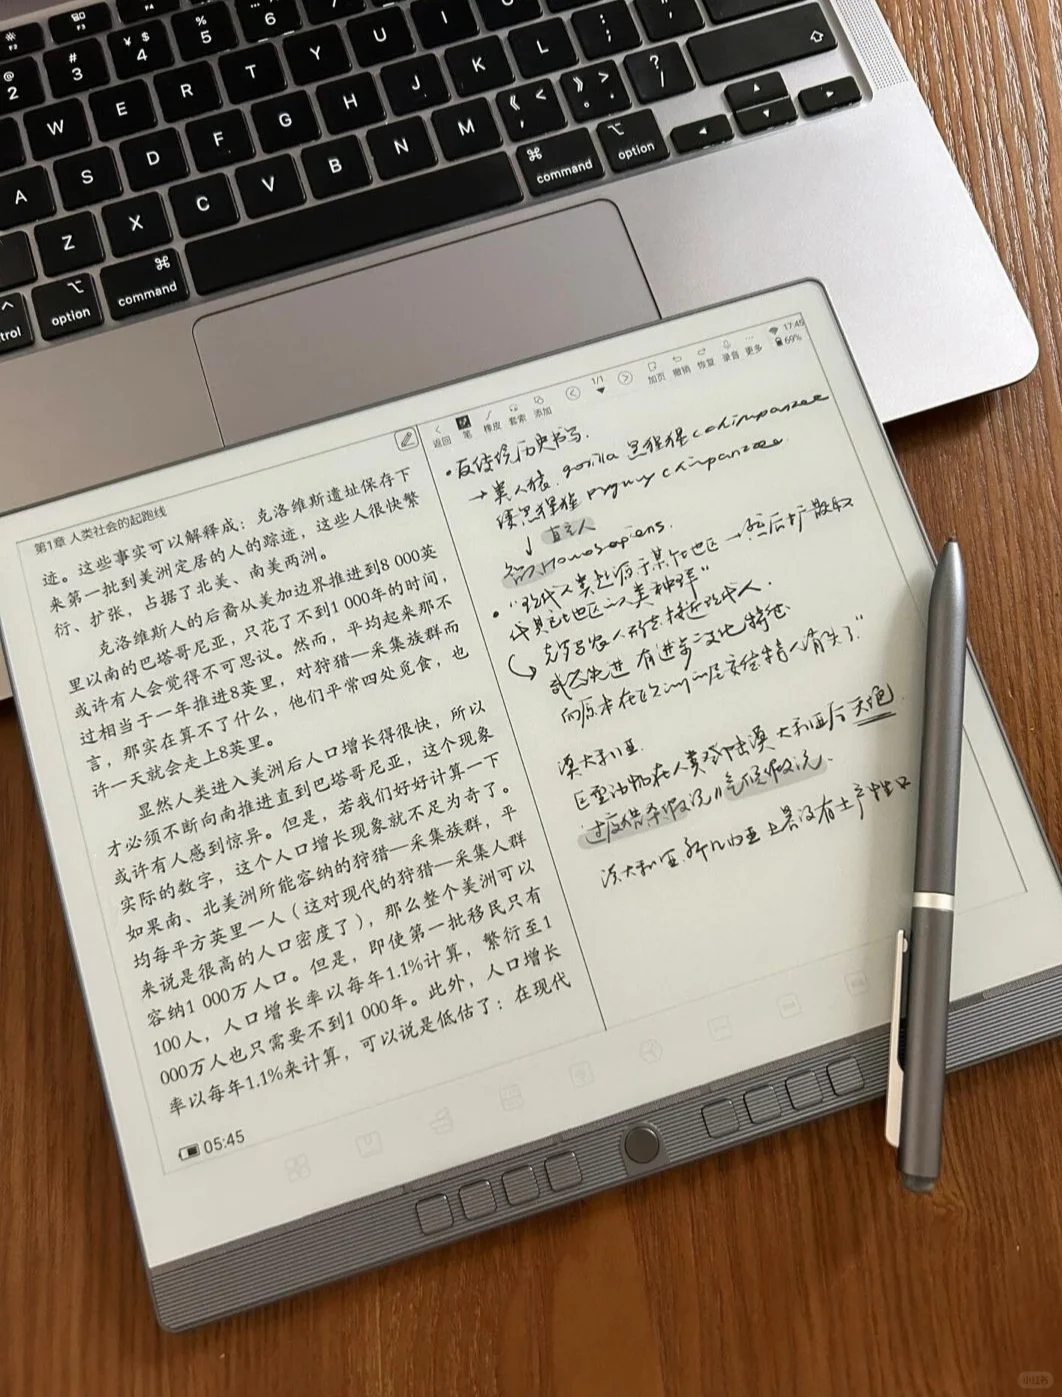 F2
F3
F4
@
2
#
3
¥ $
4
%
5
6
W
E
R
T
Y
U
I
A
S
D
F
G
H
J
K
L
:
;
Z
X
C
V
B
N
M
《 <
,
》 >
。 .
?
/
trol
option
command
command
option
17:45
69%
返回 笔 橡皮 套索 添加 1/1 加页 撤销 恢复 录音 更多
第1章 人类社会的起跑线
这些事实可以解释成:克洛维斯遗址保存下
来第一批到美洲定居的人的踪迹,这些人很快繁
衍、扩张,占据了北美、南美两洲。
克洛维斯人的后裔从美加边界推进到8 000英
里以南的巴塔哥尼亚,只花了不到1 000年的时间,
或许有人会觉得不可思议。然而,平均起来那不
过相当于一年推进8英里,对狩猎—采集族群而
言,那实在算不了什么,他们平常四处觅食,也
许一天就会走上8英里。
显然人类进入美洲后人口增长得很快,所以
才必须不断向南推进直到巴塔哥尼亚,这个现象
或许有人感到惊异。但是,若我们好好计算一下
实际的数字,这个人口增长现象就不足为奇了。
如果南、北美洲所能容纳的狩猎—采集族群,平
均每平方英里一人(这对现代的狩猎—采集人群
来说是很高的人口密度了),那么整个美洲可以
容纳1 000万人口。但是,即使第一批移民只有
100人,人口增长率以每年1.1%计算,繁衍至1
000万人也只需要不到1 000年。此外,人口增长
率以每年1.1%来计算,可以说是低估了:在现代
05:45
·反传统历史书写.
→类人猿. gorilla 黑猩猩 chimpanzee
倭黑猩猩 pygmy chimpanzee
↓ 直立人
智人 Homo sapiens.
·"现代人类起源于某个地区→然后扩散取
代其它地区的人类种群"
克罗马农人形态接近现代人.
或者先进 有进步文化特征
澳大利亚.
巨型动物在人类登陆澳大利亚后灭绝
过度猎杀假说 // 气候假说.
澳大利亚 新几内亚上
小红书